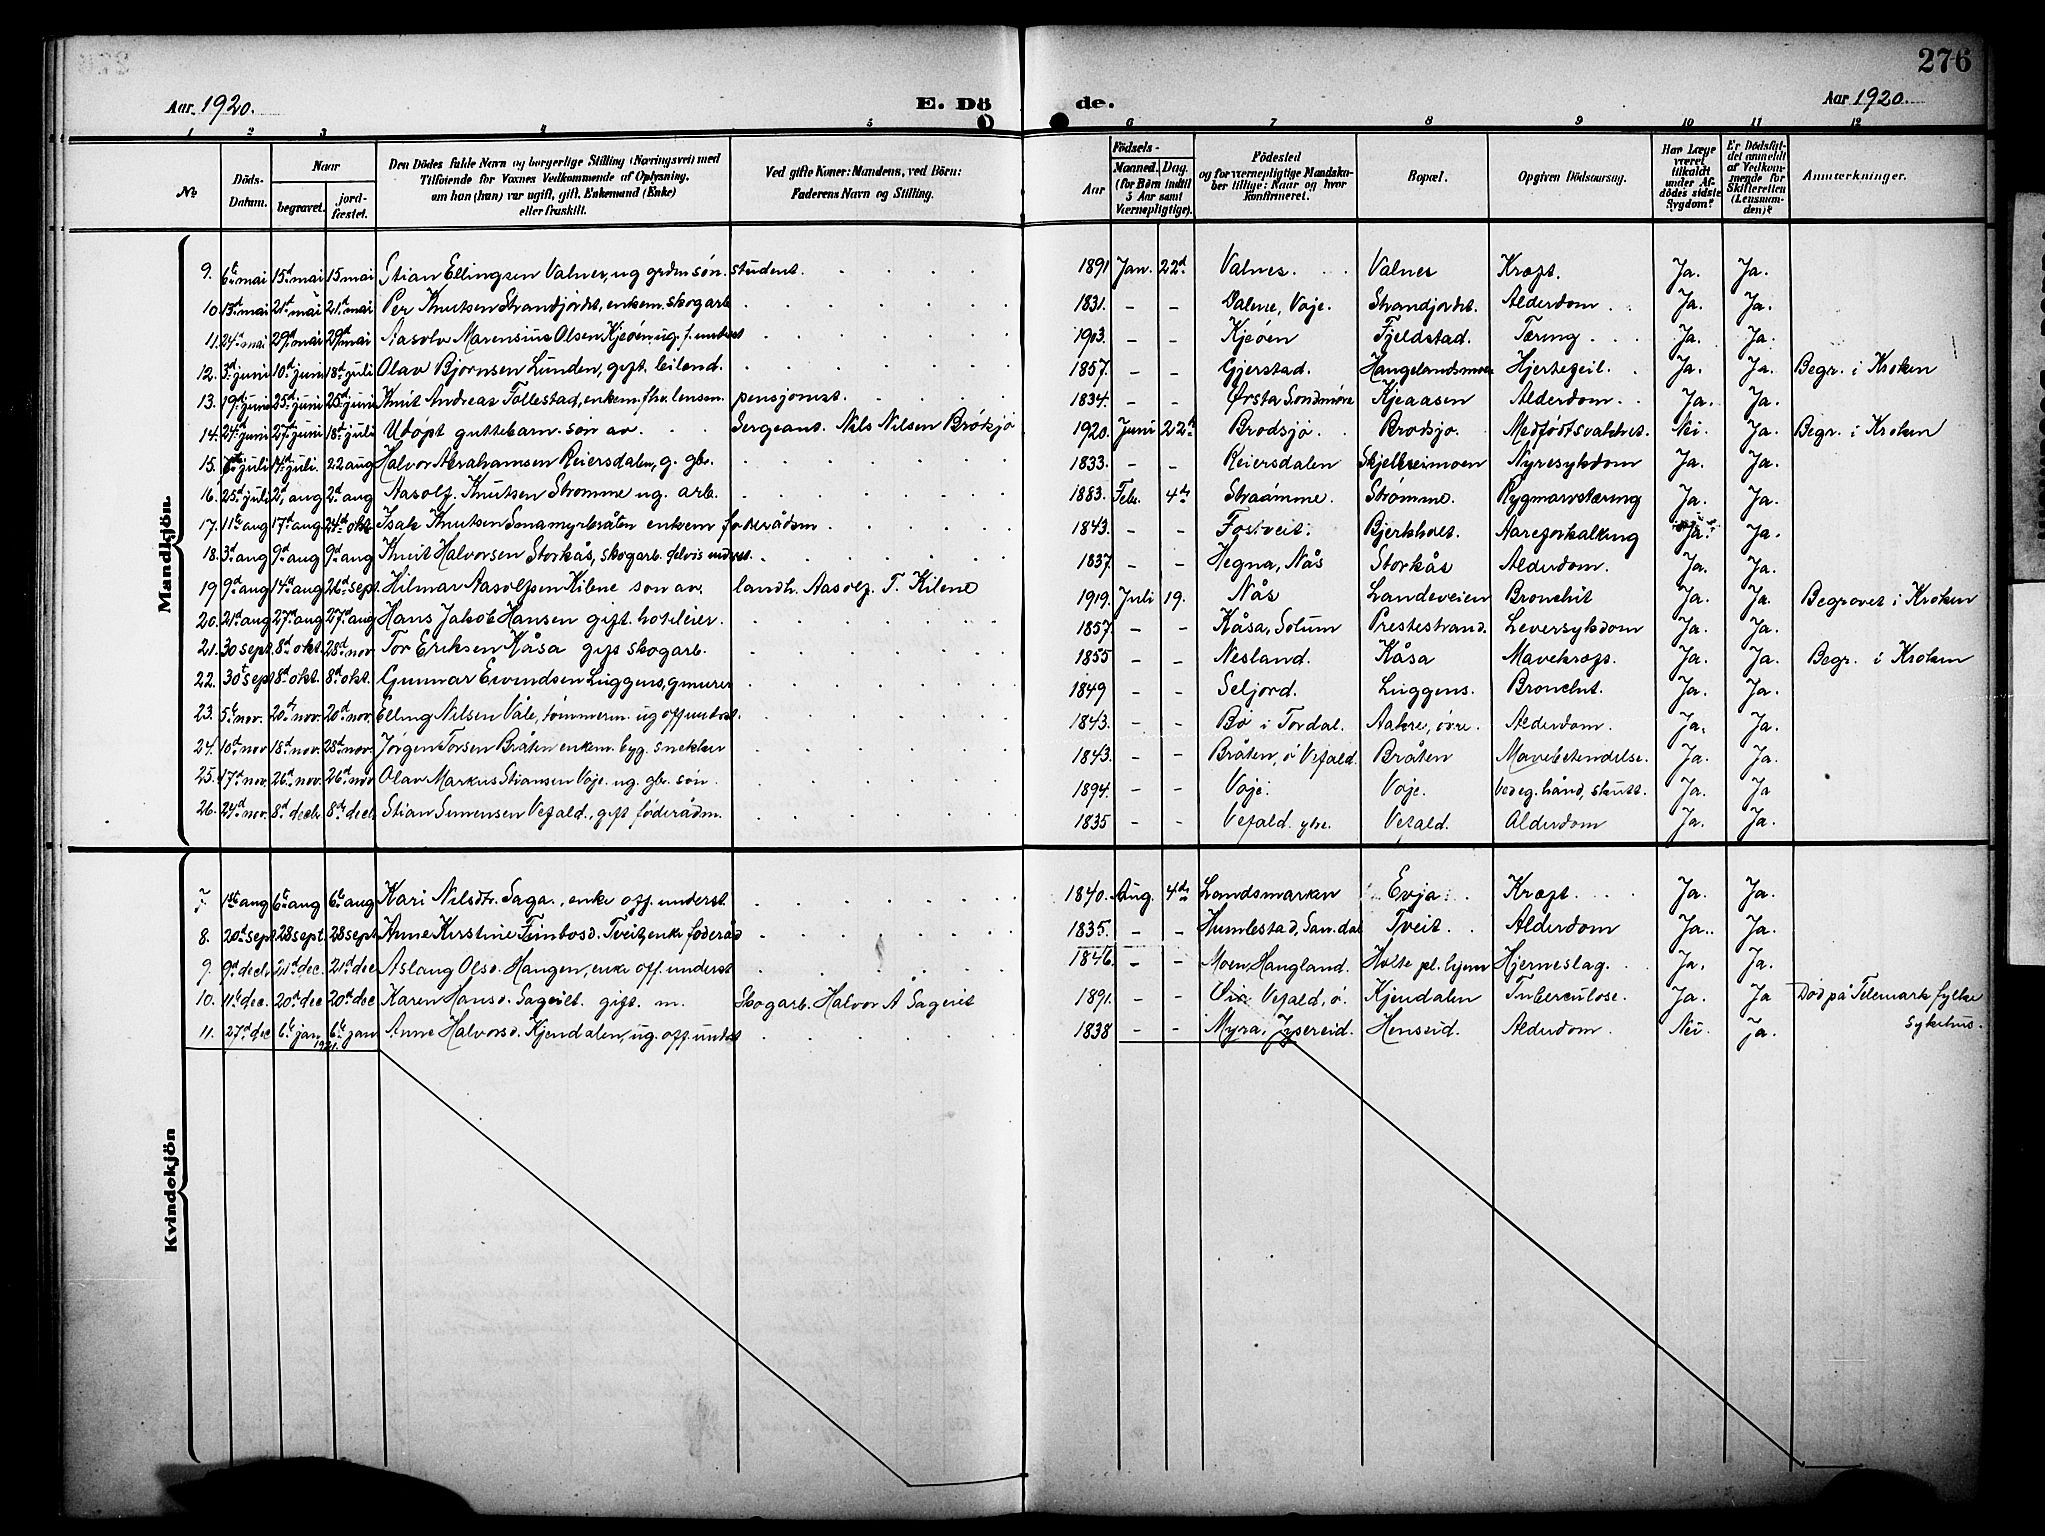 276
Aar 1920. E. Dö de. Aar 1920.
1 2 3 4 5 6 7 8 9 10 11 12
No Döds-Datum. Naar begravet. jord-fæstet. Den Dödes fulde Navn og borgerlige Stilling (Næringsvei) med Tilföiende for Voxnes Vedkommende af Oplysning, om han (hun) var ugift, gift, Enkemand (Enke) eller fraskilt. Ved gifte Koner: Mandens, ved Börn: Faderens Navn og Stilling. Födsels- Aar Maaned. Dag. (for Börn indtil 5 Aar samt Værnepligtige). Födested og for værnepligtige Mandskaber tillige: Naar og hvor konfirmeret. Bopæl. Opgiven Dödsaarsag. Har Læge været tilkaldt under Afdödes sidste Sygdom? Er Dödsfaldet anmeldt af Vedkommende for Skifteretten (Lensmanden)? Anmærkninger.
Mandkjön
9. 6te mai 15d mai 15 mai Stian Ellingsen Valnes, ug grdm søn. student. 1891 Jan. 22d Valnes. Valnes Kræft. Ja. Ja.
10. 13d mai 21d mai 21d mai Per Knutsen Strandjordet, enkem. skogarb 1831. - - Dalene, Voje. Strandjordet. Alderdom Ja. Ja.
11. 24d mai 29d mai 29d mai Aasolv Marensius Olsen Kjeøen ug. f. underst 1903. - - Kjeøen Fjeldstad. Tæring Ja. Ja.
12. 3d juni 10d juni 18d juli Olav Bjornsen Lunden, gift. leilend. 1857. - - Gjerstad. Haugelandsmoen Hjertefeil. Ja. Ja. Begr. i Kroken
13. 19d juni 25d juni 25d juni Knut Andreas Follestad, enkem. fhv. lensm. pensjonist. 1834. - - Ørsta Søndmøre Kjeaasen Alderdom Ja. Ja.
14. 24d juni 27d juni 18d juli Udøpt guttebarn søn av Sergeant. Nils Nilsen Brøsjø 1920. Juni 22d Brødsjø. Brødsjø. Medfødt svakhet. Nei. Ja. Begr. i Kroken
15. juli juli. 22 aug Halvor Abrahamsen Reiersdalen, g. gbr. 1833. - - Reiersdalen Skjelbreimoen Nyresykdom Ja. Ja.
16. 25d juli 2d aug 2d aug Aasolf. Knutsen Strømme ug. arb. 1883. Febr. 4de Straamme. Strømme. Rygmarvstæring Ja. Ja.
17. 11te aug 17d aug 24d okt. Isak Knutsen Sonamyrbråten enkem føderådsm 1843. - - Fosveit. Bjerkholt. Aareforkalkning Ja. Ja.
18. 3d aug 9d aug 9d aug Knut Halvorsen Storkås, skogarb. delvis underst. 1837. - - Hegna, Nås Storkås Alderdom. Ja. Ja.
19. 9d aug 14de aug 26d sept. Hilmar Aasolfsen Kilene søn av. landh. Aasolf. T. Kilene 1919. Juli 19. Nås Landeveien Bronchit Ja. Ja. Begravet i Kroken
20. 21d aug 27d aug 27d aug Hans Jakob Hansen gift. hoteleier. 1857. - - Kåsa, Solum Prestestrand. Leversykdom Ja. Ja.
21. 30 sept 8d okt. 28d nov Tor Eriksen Kåsa gift skogarb. 1855 - - Nesland. Kåsa Mavekræft. Ja. Ja. Begr. i Kroken
22. 30te sept 8d okt. 8d okt. Gunnar Eivindsen Luggens, g. murer 1849 - - Seljord. Luggens. Bronchit. Ja. Ja.
23. 5te nov. 20d nov. 20d nov. Elling Nilsen Våle, tømmerm. ug off underst. 1843. - - Bø i Tørdal. Aabøe, øvre. Alderdom. Ja. Ja.
24. 10d nov 18d nov. 28d nov. Jørgen Torsen Bråten enkem. byg. snekker 1843. - - Bråten, ø Vefald. Bråten Mavebetendelse. Ja. Ja.
25. 17d nov. 26d nov. 26d nov Olav Markus Stiansen Voje. ug. gbr. søn. 1894. - - Voje. Voje. Ved eg. hånd, skutt. Ja. Ja
26. 24d nov. 8d decb. 8de decb. Stian Simensen Vefald., gift føderådm. 1835 - - Vefald. ytre. Vefald. Alderdom Ja. Ja.
Kvindekjön
7. 1ste aug 6te aug 6te aug Kari Nilsdtr. Saga., enke off. underst. 1840. Aug. 4de Landsmarken Evja Kræft. Ja. Ja.
8. 20d sept. 28 sept. 28 sept. Anne Kirstine Finbosd. Tveit, enke føderåd 1835. - - Humlestad, Sandal Tveit. Alderdom Ja. Ja.
9. 9d decb. 21d dec. 21d dec Aslaug Olsd. Haugen, enke off. underst 1846. - - Moen, Haugland. Holte pl. hjem Hjerneslag. Ja. Ja.
10. 11te dec. 20d dec 20d dec Karen Hansd. Sageiet. gift. m. Skogarb. Halvor A Sageiet 1891. - - Vefald, ø. Kjendalen Tuberculose. Ja. Ja Død på Telemark fylke sykehus.
11. 27d dec 6te jan 1921. 6te jan Anne Halvorsd. Kjendalen, ug. off. underst 1838 - - Myra, Henseid. Alderdom Nei Ja.